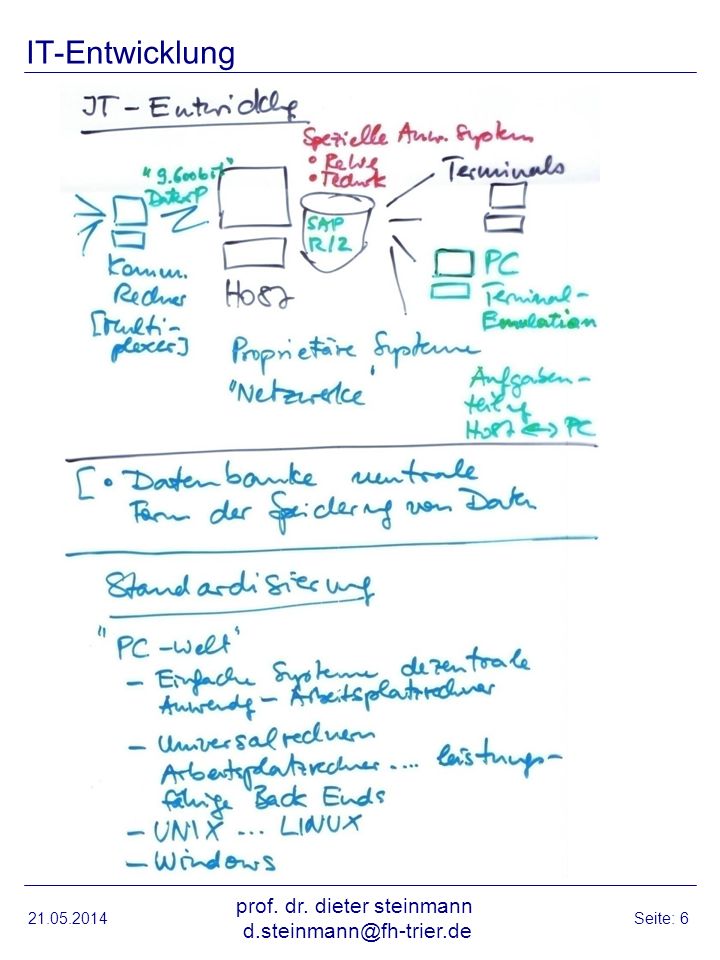 IT-Entwicklung
IT-Entwicklg
Spezielle Anw. System
• ReWe
• Technik
"9.600 bit"
DatexP
Terminals
SAP
R/2
Komm.
Rechner
[Multi-
plexer]
Host
PC
Terminal-
Emulation
Proprietäre Systeme
"Netzwerke"
Aufgaben-
teilg
Host <-> PC
[• Datenbanke neutrale
Form der Speicherung von Daten
Standardisierung
"PC-Welt"
- Einfache Systeme dezentrale
Anwendg - Arbeitsplatzrechner
- Universalrechnern
Arbeitsplatzrechner .... leistungs-
fähige Back Ends
- UNIX ... LINUX
- Windows
21.05.2014
prof. dr. dieter steinmann
d.steinmann@fh-trier.de
Seite: 6